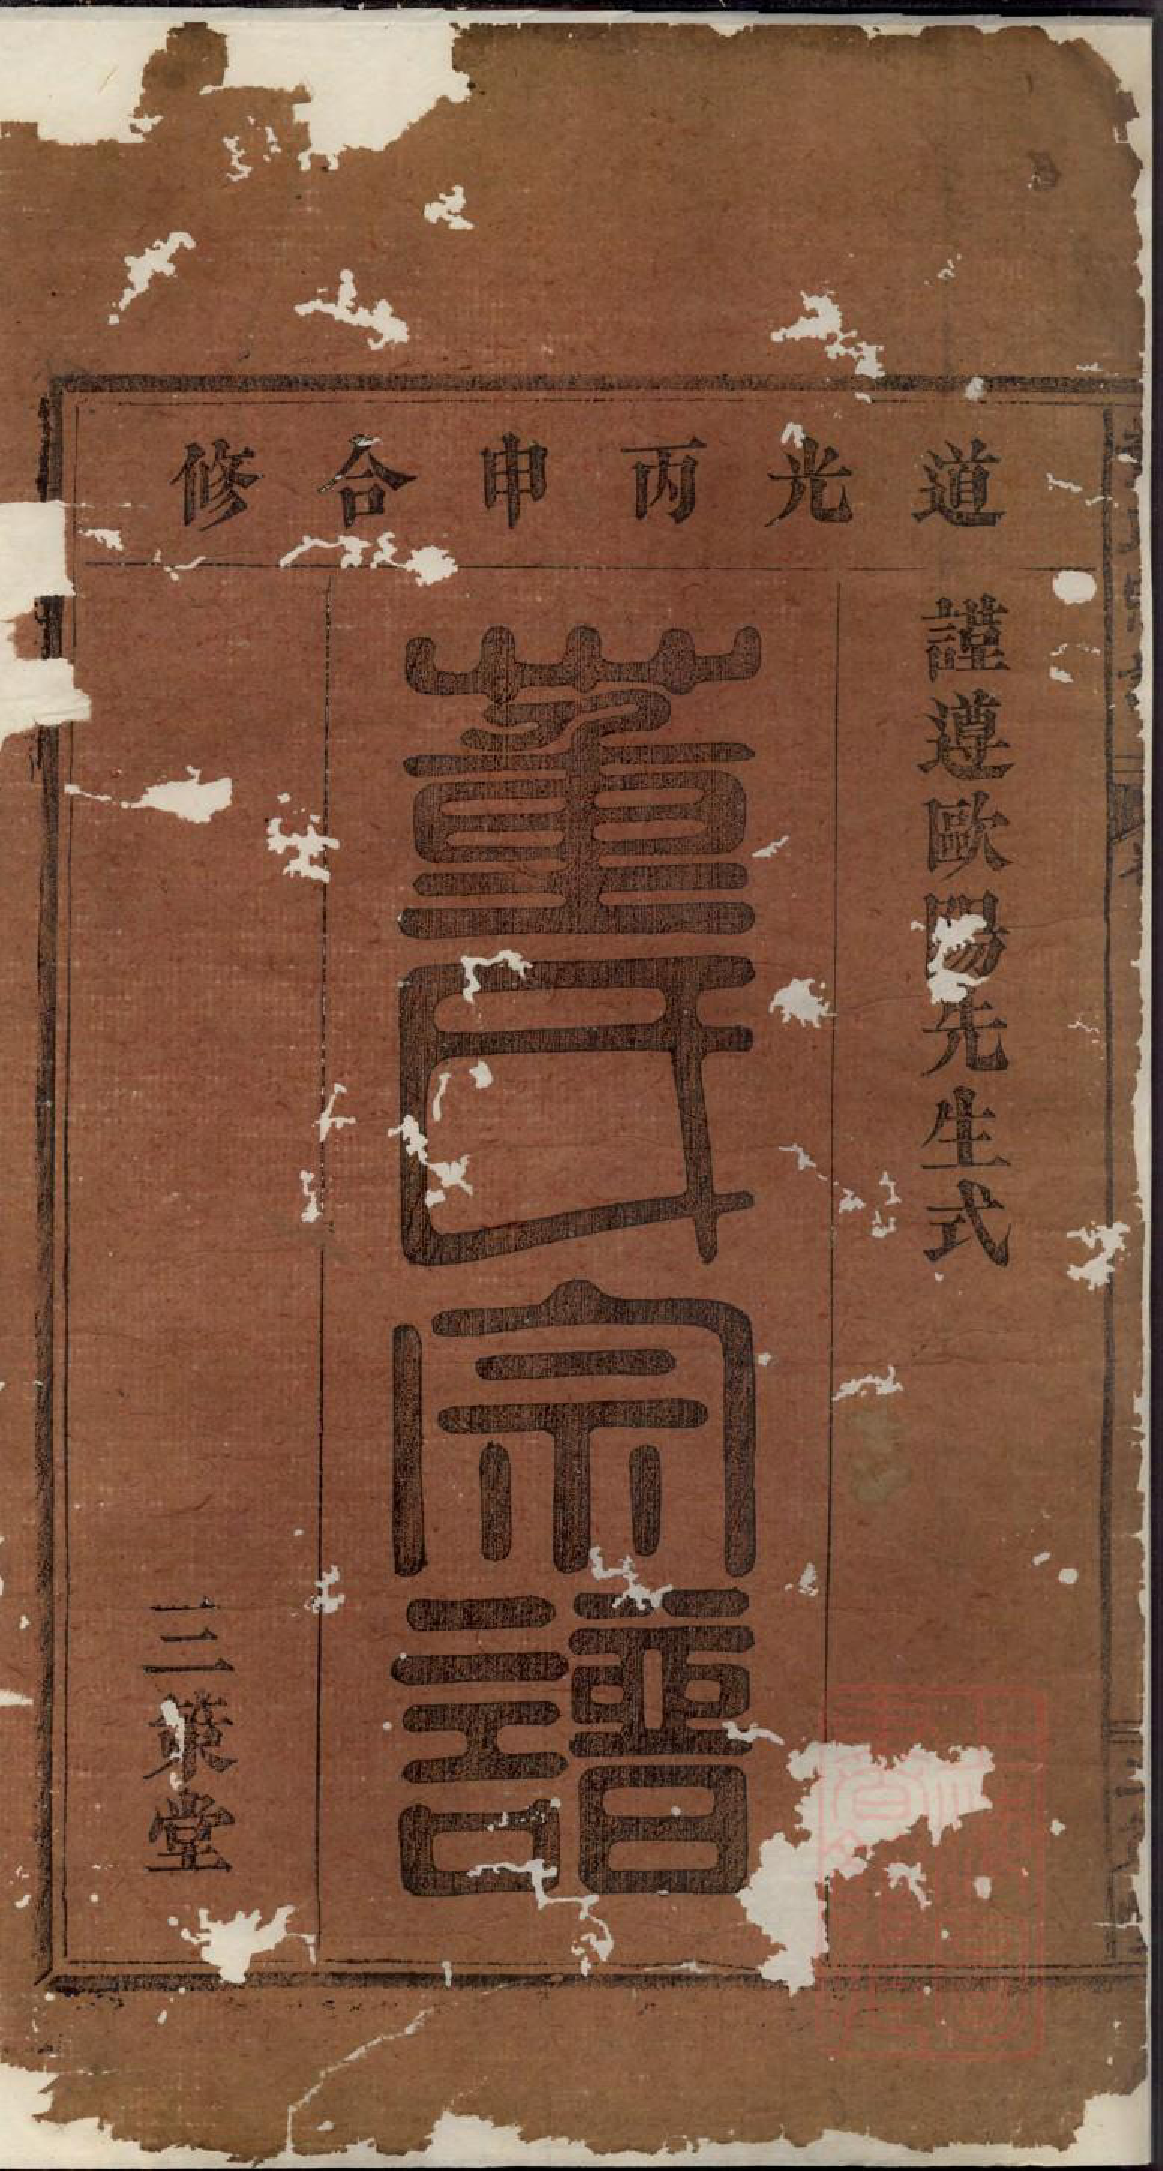 道光丙申合修
謹遵歐陽先生式
董氏宗譜
三策堂